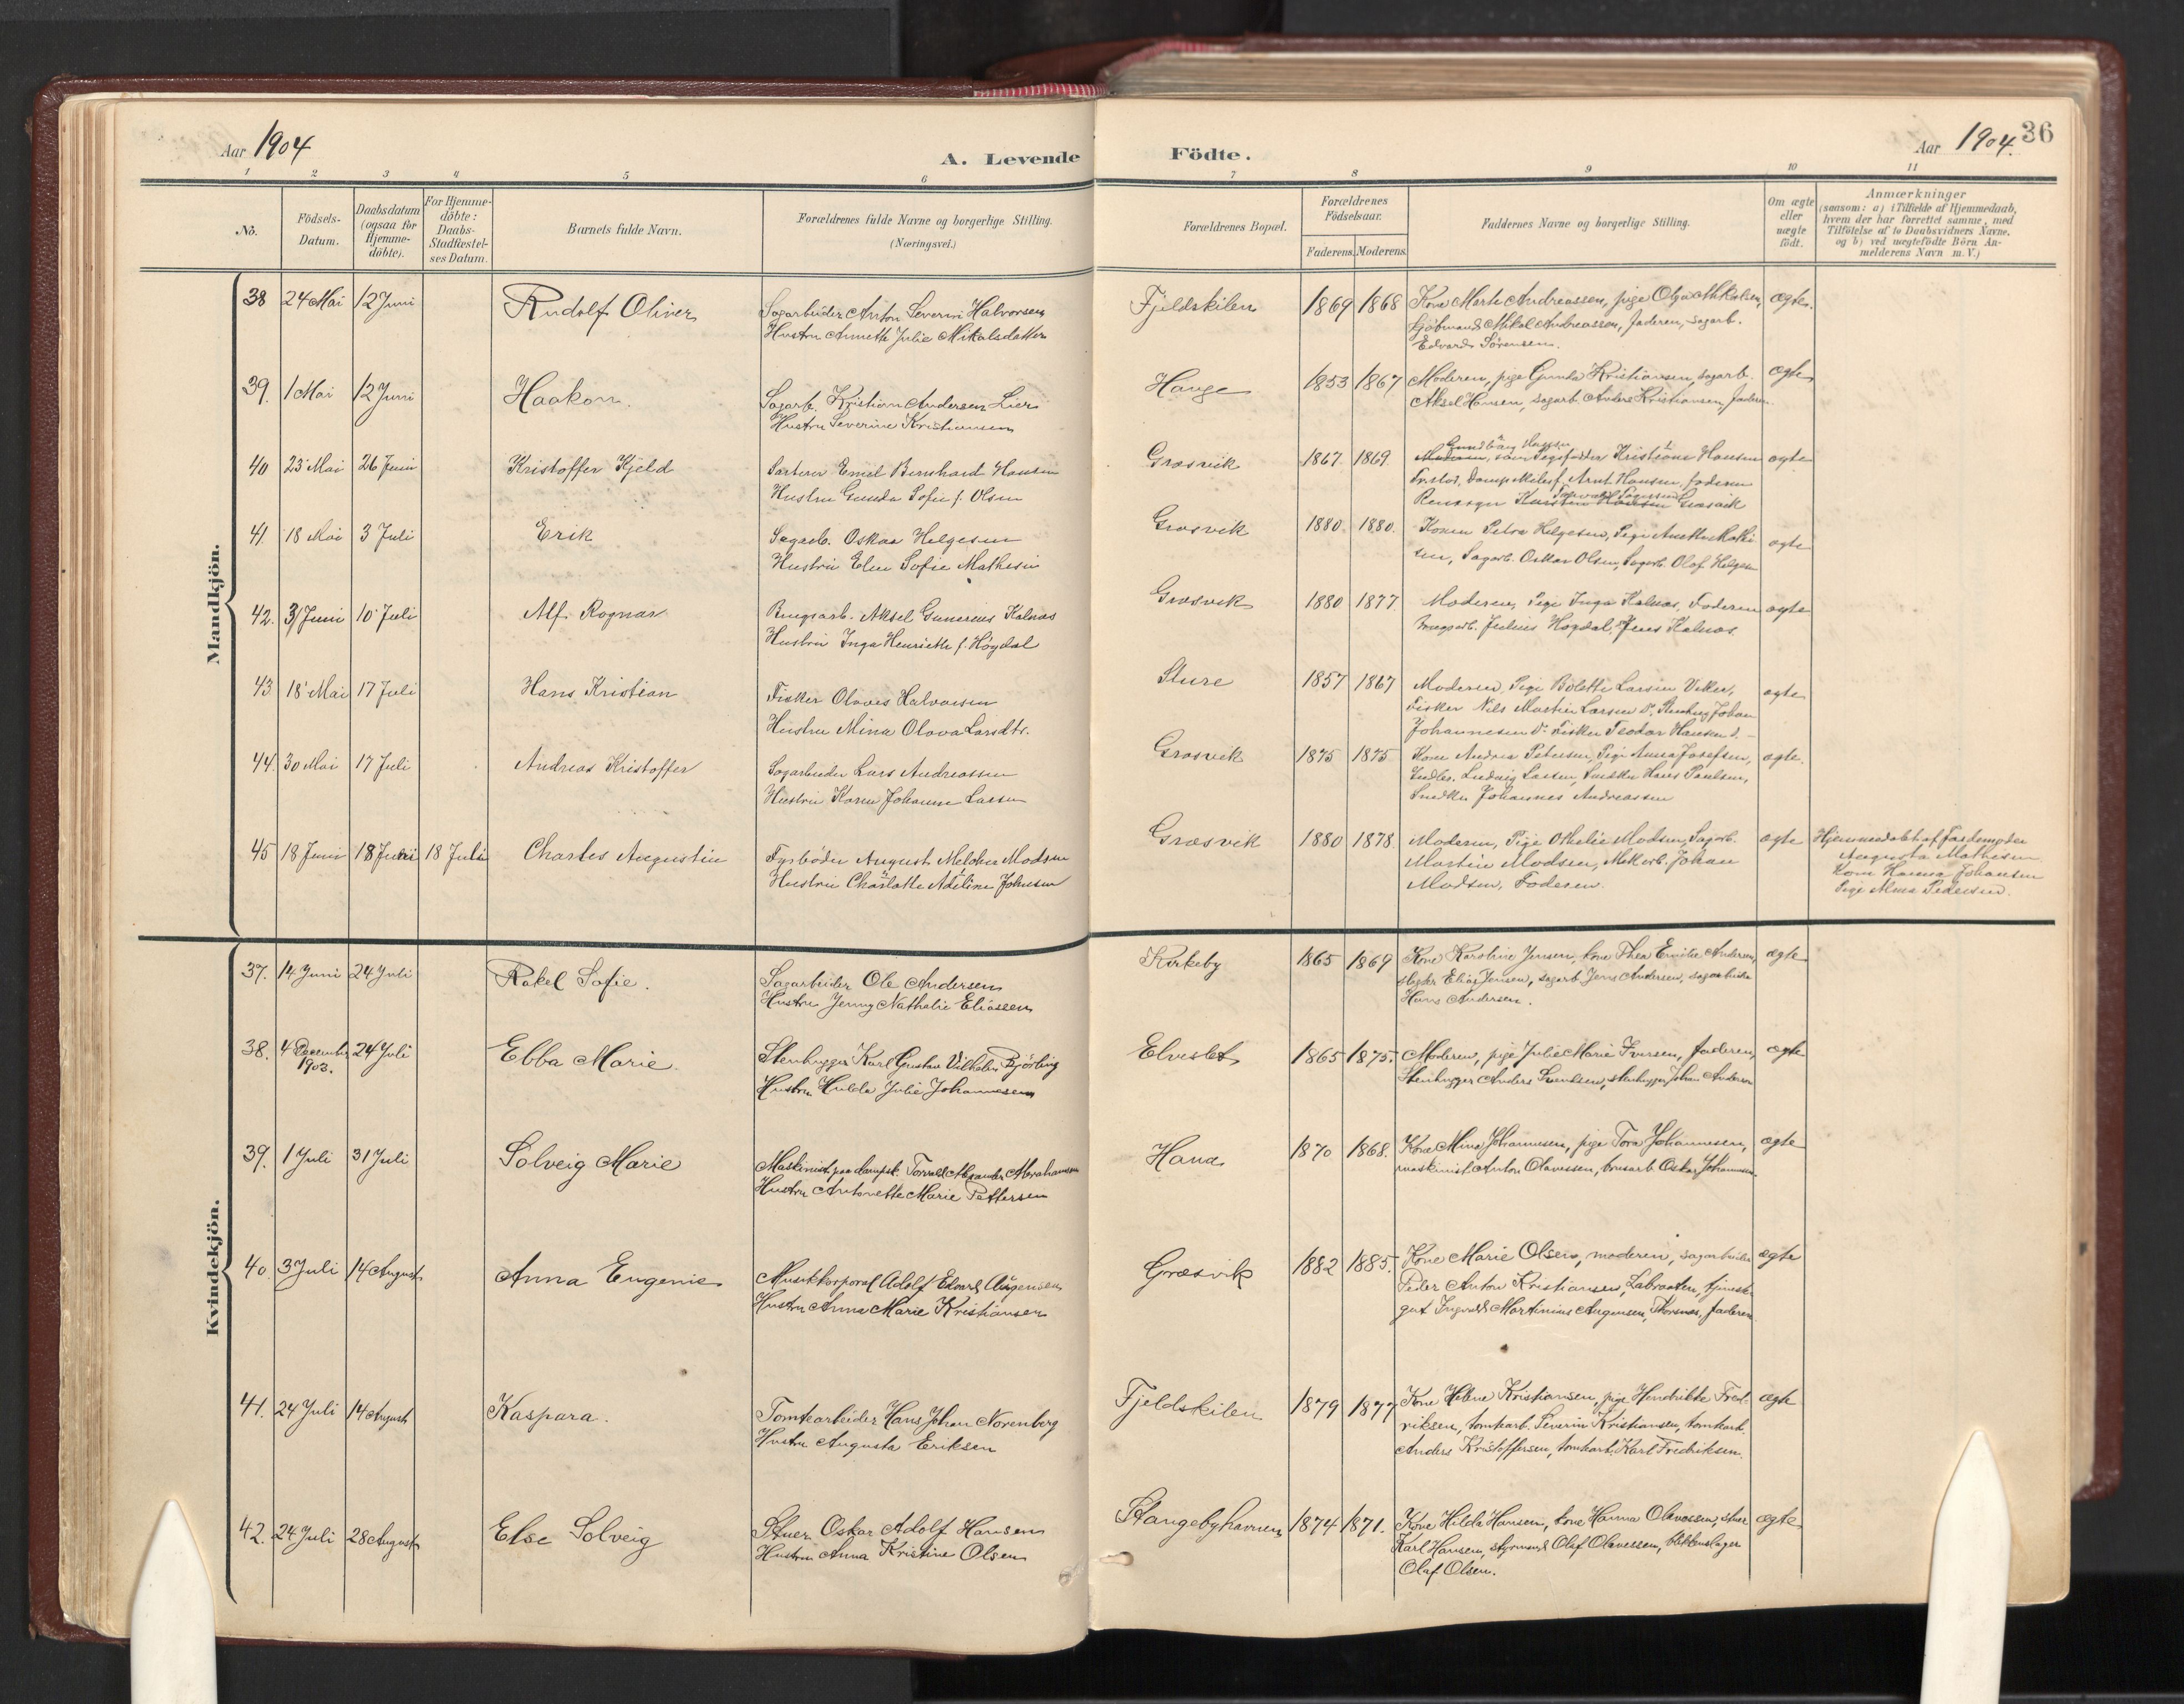 Aar 1904
A. Levende
Födte.
Aar 1904. 36
1 2 3 4 5 6 7 8 9 10 11
No.
Födsels-
Datum.
Daabsdatum
(ogsaa for
Hjemme-
döbte).
For Hjemme-
döbte:
Daabs-
Stadfæstel-
ses Datum.
Barnets fulde Navn.
Forældrenes fulde Navne og borgerlige Stilling.
(Næringsvei.)
Forældrenes Bopæl.
Forældrenes
Födselsaar.
Faderens. Moderens.
Faddernes Navne og borgerlige Stilling.
Om ægte
eller
uægte
födt.
Anmærkninger
(saasom: a) i Tilfælde af Hjemmedaab,
hvem der har forrettet samme, med
Tilföielse af to Daabsvidners Navne.
og b) ved uægtefödte Börn An-
melderens Navn m. V.)
Mandkjön.
38 24 Mai 12 Juni Rudolf Oliver Sagarbeider Anton Severin Halvorsen Fjeldskilen 1869 1868 Kone Marte Andreassen, pige Olga Mikalsen, ægte.
Hustru Annette Julie Mikalsdatter Mikal Andreassen, faderen, sagarb.
Edvard Sørensen.
39. 1 Mai 12 Juni Haakon. Sagarb. Kristian Andersen Lier Hauge 1853 1867 Moderen, pige Gunda Kristiansen, sagarb. ægte
Hustru Severine Kristiansen Aksel Hansen, sagarb. Anders Kristiansen, faderen.
40 23 Mai 26 Juni Kristoffer Kjeld Emil Bernhard Hansen Græsvik 1867 1869 Kristiane Hansen ægte
Hustru Gunda Sofie f. Olsen Arnt Hansen, faderen
Græsvik
41. 18 Mai 3 Juli Erik Sagarb. Oskar Helgesen Græsvik 1880 1880 Konen Petra Helgesen, Pige Anette Mathi
Hustru Elen Sofie Mathisen sen, Sagarb. Oskar Olsen, Sagarb. Olaf Helgesen ægte
42. 3 Juni 10 Juli Alf Ragnar Brugsarb. Aksel Gunerius Kalnæs Græsvik 1880 1877 Moderen, Pige Inga Kalnæs, Faderen ægte
Hustru Inga Henriette f. Høydal Brugsarb. Julius Høydal, Jens Kalnæs
43 18 Mai 17 Juli Hans Kristian Fisker Olaves Halvorsen Sture 1857 1867 Moderen, Pige Bolette Larsen Viker, ægte
Hustru Mina Olava Larsdtr. Fisker Nils Martin Larsen Do, Stenhug Johan
Johannesen Do Fisker Teodor Hansen
44. 30 Mai 17 Juli Andreas Kristoffer Sagarbeider Lars Andreassen Græsvik 1875 1875 Kone Andrea Petersen, Pige Anna Josefsen, ægte.
Hustru Karen Johanne Larsen Ludvig Larsen, Snedker Hans Paulsen,
Snedker Johannes Andreassen
45 18 Juni 18 Juni 18 Juli Charles Augustin Fyrbøder August Melcher Madsen Græsvik 1880 1878. Moderen, Pige Othelie Madsen, Sagarb. ægte Hjemmedøbt af Jordemoder
Hustru Charlotte Adeline Johnsen Martin Madsen, Mek arb. Johan Augusta Mathisen
Madsen, Faderen. Kone Hanna Johansen
Pige Alma Pedersen.
Kvindekjön.
37. 14 Juni 24 Juli Rakel Sofie. Sagarbeider Ole Andersen Kirkeby 1865 1869 Kone Karoline Jensen, kone Thea Emilie Andersen, ægte
Hustru Jenny Nathalie Eliassen Elias Jensen, sagarb. Jens Andersen, sagarbeider
Hans Andersen.
38. 4 December 24 Juli Ebba Marie. Stenhugger Karl Gustav Vilhelm Björling Elveslet 1865 1875. Moderen, pige Julie Marie Iversen, faderen, ægte
1903. Hustru Hulda Julie Johannesen Stenhugger Anders Svendsen, stenhugger Johan Andersen
39. 1 Juli 31 Juli Solveig Marie Maskinist paa dampsk. Torvald Alexander Abrahamsen Hauø 1870 1868. Kone Mina Johannesen, pige Tora Johannesen, ægte
Hustru Antonette Marie Pettersen maskinist Anton Olavessen, brusarb. Oskar Johannesen.
40. 3 Juli 14 August Anna Eugenie Musikkorporal Adolf Edvard Augensen Græsvik 1882 1885. Kone Marie Olsen, moderen, sagarbeider ægte
Hustru Anna Marie Kristiansen Peder Anton Kristiansen, Labraaten, tjeneste
gut Ingvald Martinius Augensen, Thorsnæs, faderen
41. 24 Juli 14 August Kaspara. Tomtearbeider Hans Johan Norenberg Fjeldskilen 1879 1877 Kone Helene Kristiansen, pige Hendrikke Fred- ægte
Hustru Augusta Eriksen riksen, tomtearb. Severin Kristiansen, tomtearb.
Anders Kristoffersen, tomtearb. Karl Fredriksen.
42. 24 Juli 28 August Else Solveig Stuer Oskar Adolf Hansen Stangebyhavnen 1874 1871. Kone Hilda Hansen, kone Hanna Olavessen, stuer ægte
Hustru Anna Kristine Olsen Karl Hansen, styrmand Olaf Olavessen, blikkenslager
Olaf Olsen.